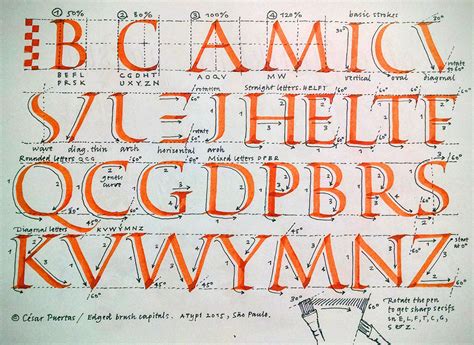 ① 50% ② 80% ③ 100% ④ 120% basic strokes
B C A M I C \
BEFL CGDHT AOQV MW vertical oval diagonal
PRSK UXYZN
rotate to 60°
rotation Straight letters. HELFT
S / L E J H E L T F
wave diag. thin arch horizontal arch
Rounded letters QCG Mixed letters DPBR
gentle curve
Q C G D P B R S
Diagonal letters KVWYMNZ
K V W Y M N Z
start 60°
© César Puertas / Edged brush capitals. ATypI 2015, São Paulo.
30° 60°
Rotate the pen
to get sharp serifs
in E, L, F, T, C, G,
S & Z.